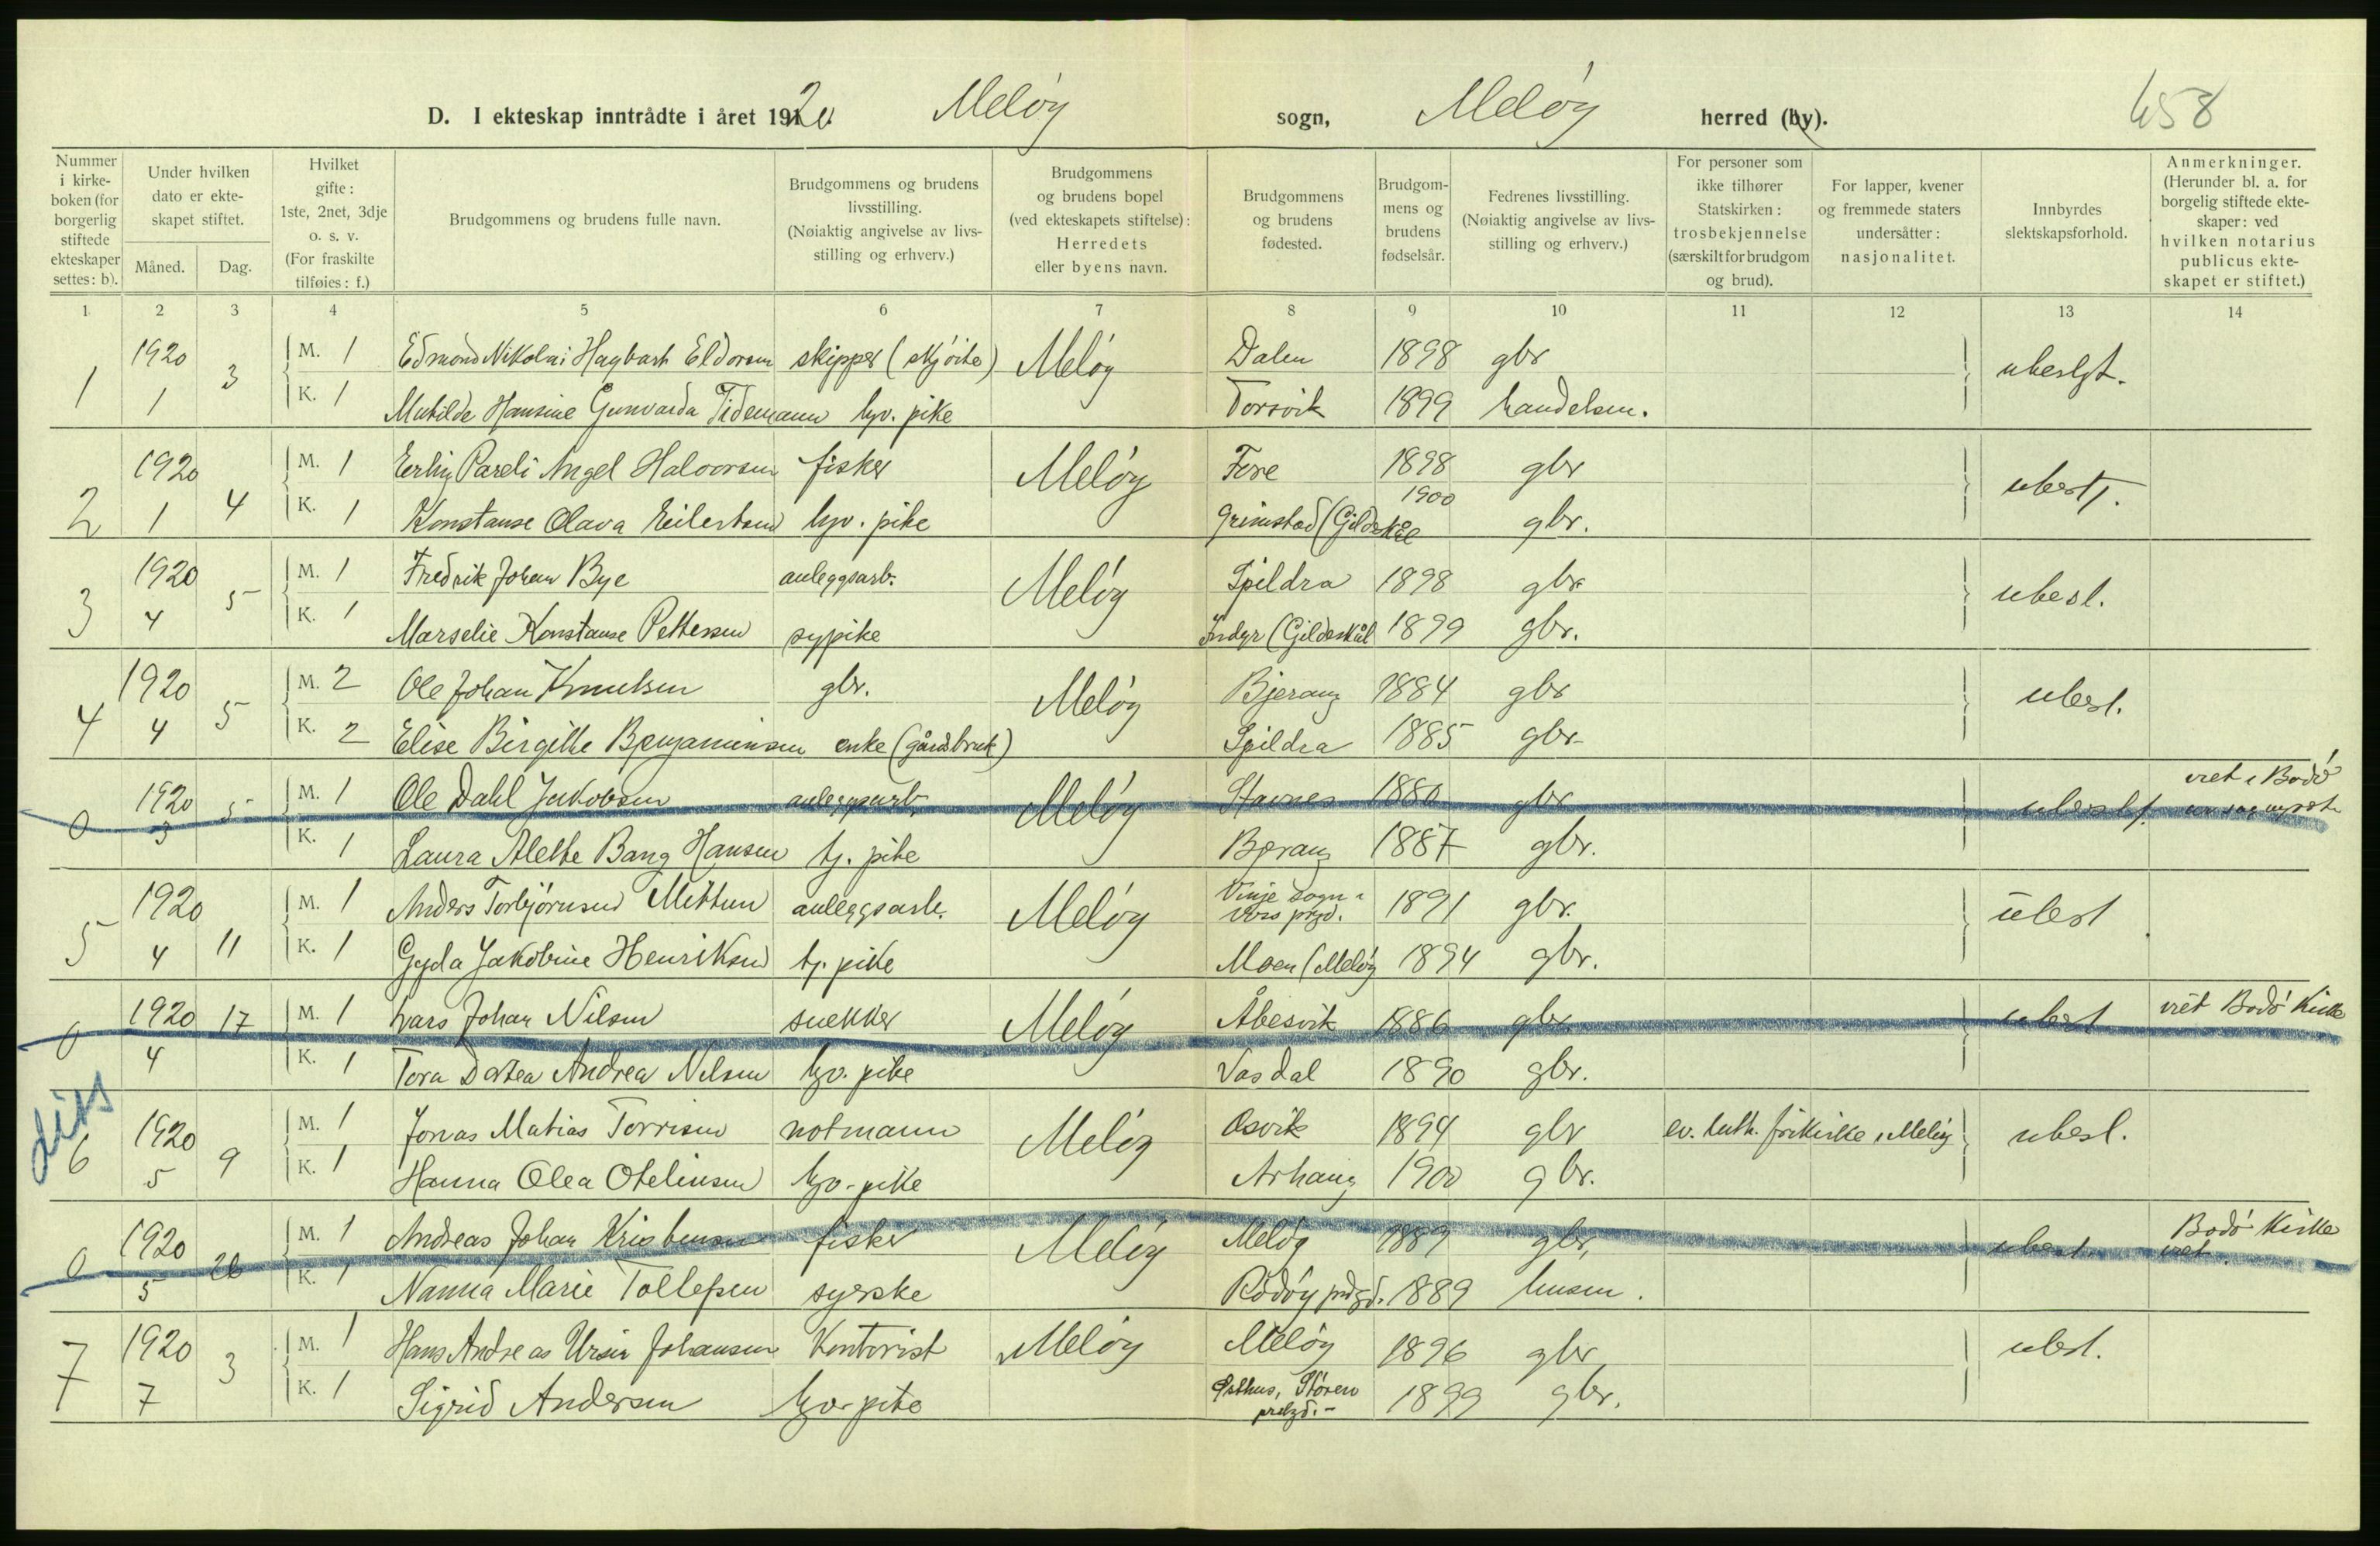 D. I ekteskap inntrådte i året 1920 Meløy sogn, Meløy herred (by). 658
Nummer i kirke-boken (for borgerlig stiftede ekteskaper settes: b).
Under hvilken dato er ekte-skapet stiftet.
Måned. Dag.
Hvilket gifte: 1ste, 2net, 3dje o. s. v. (For fraskilte tilføies: f.)
Brudgommens og brudens fulle navn.
Brudgommens og brudens livsstilling. (Nøiaktig angivelse av livs-stilling og erhverv.)
Brudgommens og brudens bopel (ved ekteskapets stiftelse): Herredets eller byens navn.
Brudgommens og brudens fødested.
Brudgom-mens og brudens fødselsår.
Fedrenes livsstilling. (Nøiaktig angivelse av livs-stilling og erhverv.)
For personer som ikke tilhører Statskirken: trosbekjennelse (særskilt for brudgom og brud).
For lapper, kvener og fremmede staters undersåtter: nasjonalitet.
Innbyrdes slektskapsforhold.
Anmerkninger. (Herunder bl. a. for borgelig stiftede ekte-skaper: ved hvilken notarius publicus ekte-skapet er stiftet.)
1 2 3 4 5 6 7 8 9 10 11 12 13 14
1 1920 1 3 M. 1 Edmond Nikolai Hagbart Eldorsen skipper (skjøite) Meløy Dalen 1898 gbr ubeslgt.
K. 1 Matilde Hansine Gunvarda Tidemann hjv. pike Torsvik 1899 handelsm.
2 1920 1 4 M. 1 Erling Pareli Angel Halvorsen fisker Meløy Fore 1898 gbr ubesl.
K. 1 Konstanse Olava Eilertsen hjv. pike Grimstad (Gildeskål 1900 gbr.
3 1920 4 5 M. 1 Fredrik Johan Bye anleggsarb. Meløy Spildra 1898 gbr ubesl.
K. 1 Marselie Konstanse Pettersen sypike Indyr (Gildeskål 1899 gbr.
4 1920 4 5 M. 2 Ole Johan Knutsen gbr. Meløy Bjerang 1884 gbr ubesl.
K. 2 Elise Birgitte Benjaminsen enke (gårdsbruk) Spildra 1885 gbr
0 1920 3 5 M. 1 Ole Dahl Jakobsen anleggsarb. Meløy Stavnes 1880 gbr ubeslgt. viet i Bodø
K. 1 Laura Alette Bang Hansen tj. pike Bjerang 1887 gbr.
5 1920 4 11 M. 1 Anders Torbjørnsen Mittun anleggsarb. Meløy Vinje sogn i Vors prgd. 1891 gbr. ubesl
K. 1 Gyda Jakobine Henriksen tj. pike Moen (Meløy 1894 gbr.
0 1920 4 17 M. 1 Lars Johan Nilsen snekker Meløy Åbesvik 1886 gbr ubesl viet Bodø Kirke
K. 1 Tora Dortea Andrea Nilsen hjv. pike Vasdal 1890 gbr.
diss
6 1920 5 9 M. 1 Jonas Matias Torrisen notmann Meløy Osvik 1894 gbr ev. luth. frikirke i Meløy ubesl.
K. 1 Hanna Olea Otelinsen hjv. pike Arhaug 1900 gbr.
0 1920 5 26 M. 1 Andreas Johan Kristensen fisker Meløy Meløy 1889 gbr, ubesl Bodø Kirke viet.
K. 1 Nanna Marie Tollefsen syerske Rødøy prgd. 1889 husm.
7 1920 7 3 M. 1 Hans Andreas Ursin Johansen Kontorist Meløy Meløy 1896 gbr ubesl.
K. 1 Sigrid Andersen hjv. pike Østhus, Støren prgd. 1899 gbr.